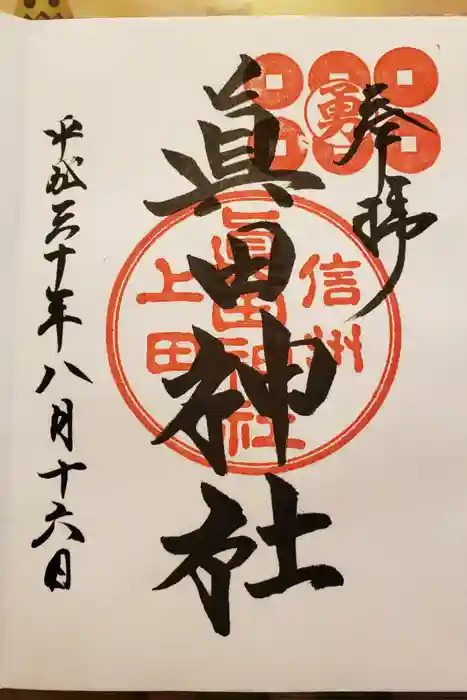 奉拝
勇
眞田神社
信州
眞田神社
上田
平成三十年八月十六日